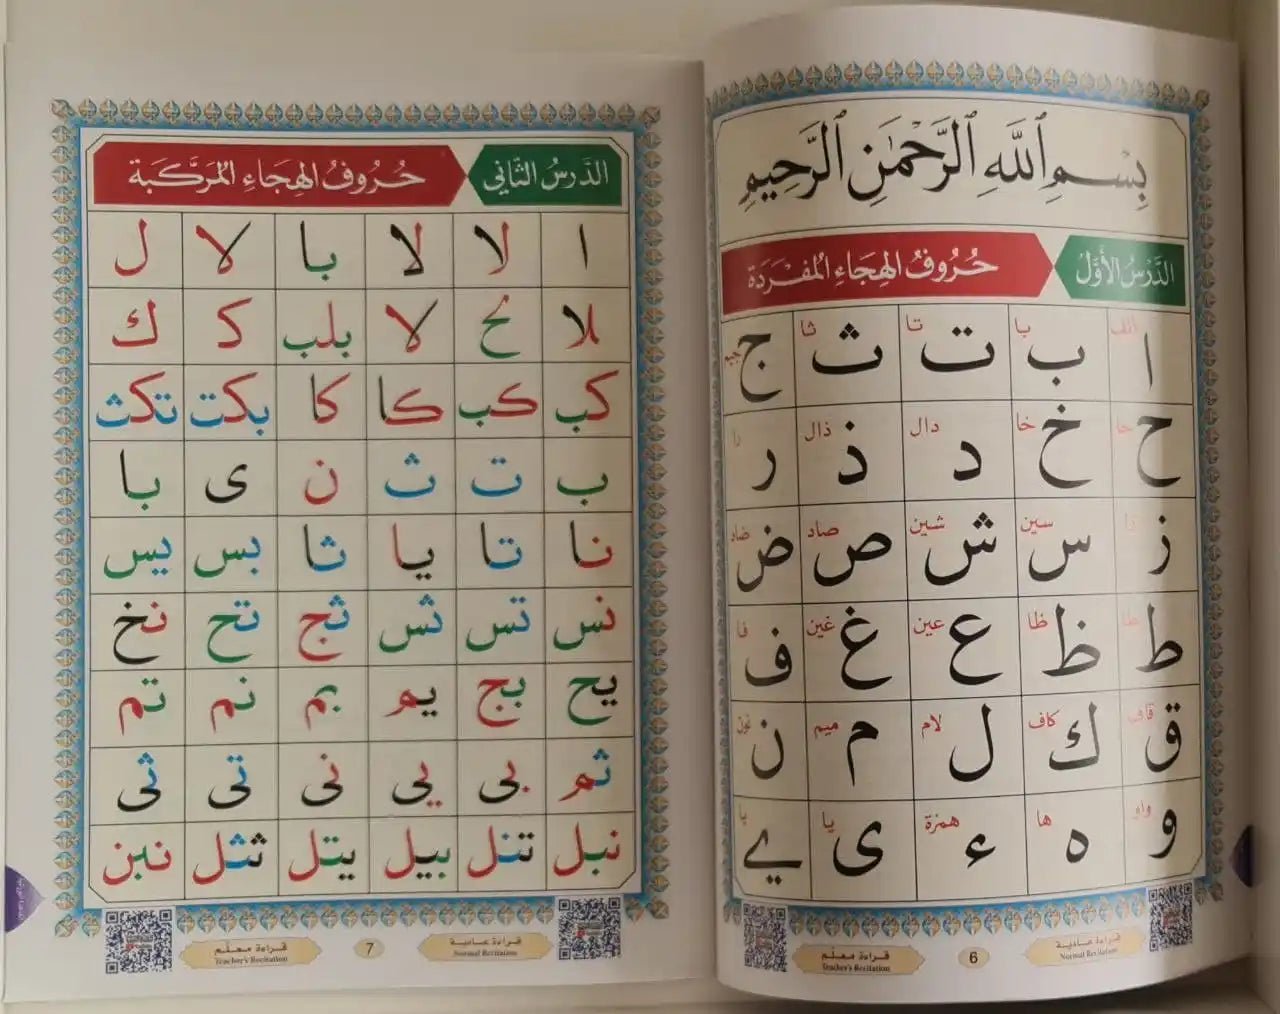 بِسْمِ ٱللَّهِ ٱلرَّحْمَٰنِ ٱلرَّحِيمِ
الدَّرْسُ الأَوَّلُ حُرُوفُ الهِجَاءِ المُفْرَدَة
ا ألف ب با ت تا ث ثا ج جيم
ح حا خ خا د دال ذ ذال ر را
ز زا س سين ش شين ص صاد ض ضاد
ط طا ظ ظا ع عين غ غين ف فا
ق قاف ك كاف ل لام م ميم ن نون
و واو ه ها ء همزة ى يا ے يا
قراءة عادية
Normal Recitation
6
قراءة معلم
Teacher's Recitation
الدَّرْسُ الثَّانِي حُرُوفُ الهِجَاءِ المُرَكَّبَة
ا لا لا با لا ل
بلا لح لا بلب كـ ك
كب كب كا كا بكت تكث
ب ت ث ن ى با
نا تا يا ثا بس يس
نس تس ثس ثج تح نخ
يح بج يم بم نم تم
ثم بى يى نى تى ثى
نبل تنل بيل يتل ثثل نبن
قراءة عادية
Normal Recitation
7
قراءة معلم
Teacher's Recitation